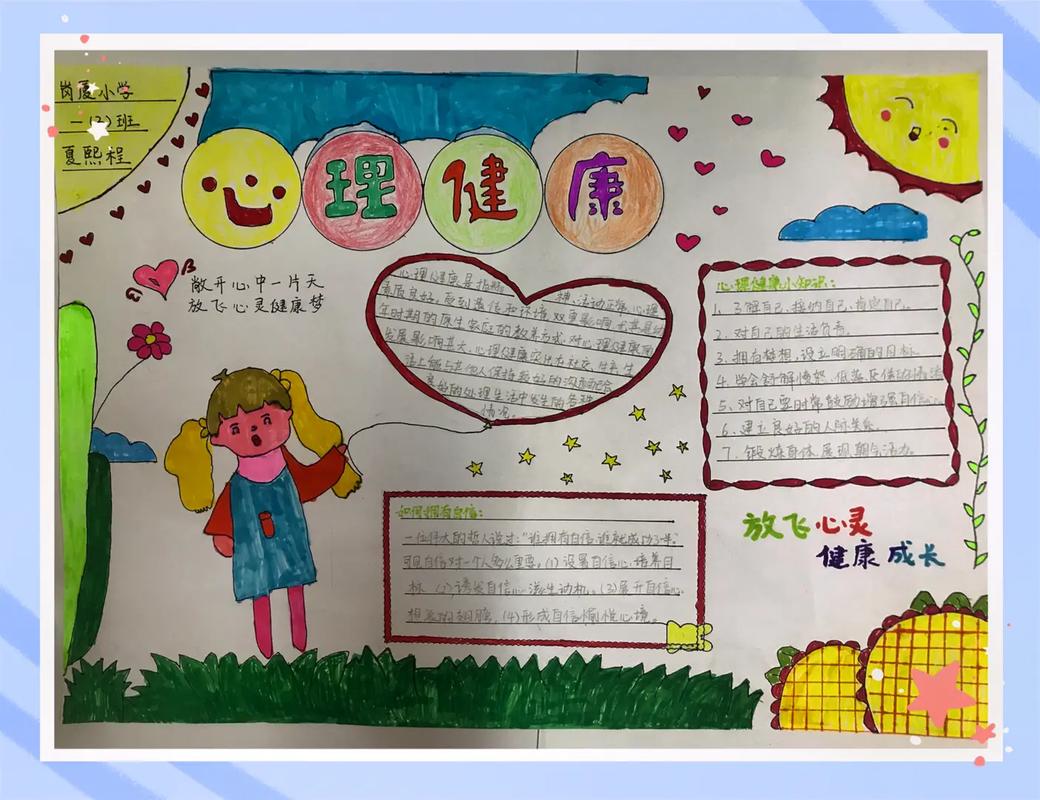 岗厦小学
一(2)班
夏熙程
心理健康
敞开心中一片天
放飞心灵健康梦
心理健康是指精神、活动正常、心理
素质良好。受到遗传和环境双重影响,尤其是幼
年时期的原生家庭的教养方式,对心理健康的
发展影响甚大。心理健康突出在社交、生产、生
活上能与其他人保持较好的沟通或配合
良好的处理生活中发生的各种
情况。
心理健康小知识:
1、了解自己、接纳自己、肯定自己。
2、对自己的生活负责。
3、拥有梦想,设立明确的目标。
4、学会舒解愤怒、低落、厌倦
5、对自己要时常鼓励增强自信心
6、建立良好的人际关系。
7、锻炼身体,展现朝气活力。
如何拥有自信:
一位伟大的哲人说过:“谁拥有自信,谁就成功了一半”
可见自信对一个人多么重要。(1)设置自信心培养目
标 (2)诱发自信心滋生动机。(3)展开自信心
想象的翅膀,(4)形成自信愉悦心境。
放飞心灵
健康成长